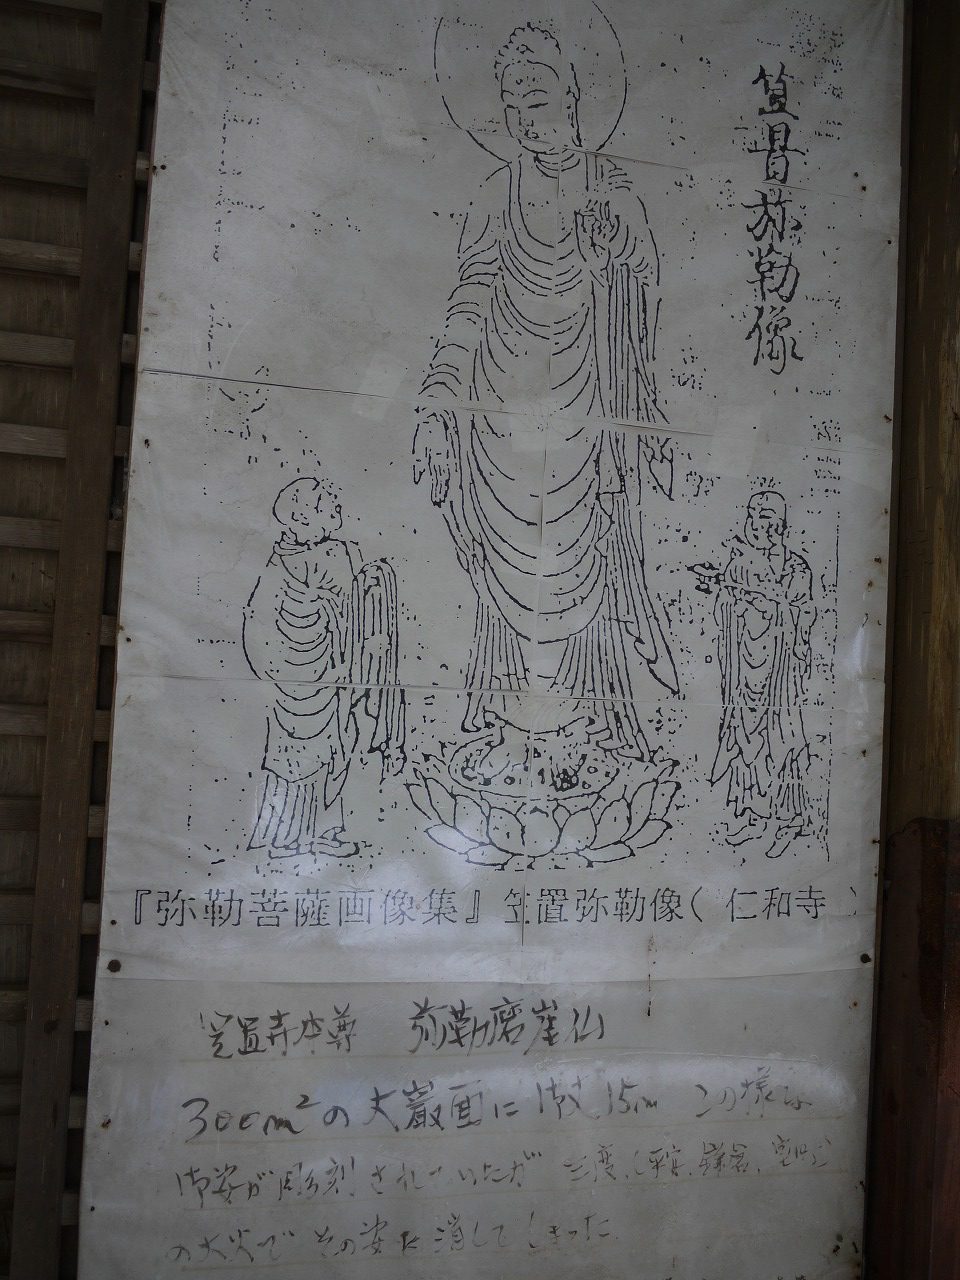 笠置弥勒像
『弥勒菩薩画像集』笠置弥勒像(仁和寺)
笠置寺本尊 弥勒磨崖仏
30cm²の大巌面に御丈15m この様な
御姿が彫刻されていたが 三度(平安、鎌倉、室町)
の大火で その姿を消してしまった